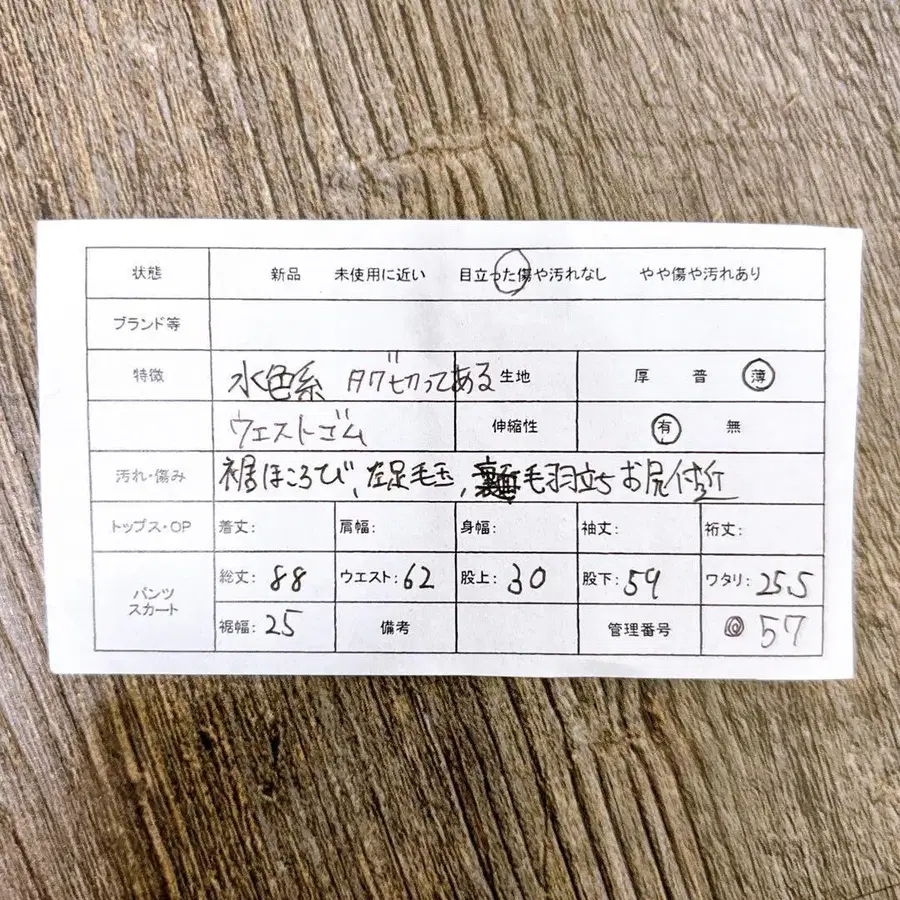 状態 新品 未使用に近い 目立った傷や汚れなし やや傷や汚れあり
ブランド等
特徴 水色系 タグ切ってある 生地 厚 普 薄
ウエストゴム 伸縮性 有 無
汚れ・傷み 裾ほころび、左足毛玉、裏面毛羽立ちお尻付近
トップス・OP 着丈: 肩幅: 身幅: 袖丈: 裄丈:
パンツ スカート 総丈: 88 ウエスト: 62 股上: 30 股下: 59 ワタリ: 25.5
裾幅: 25 備考 管理番号 57